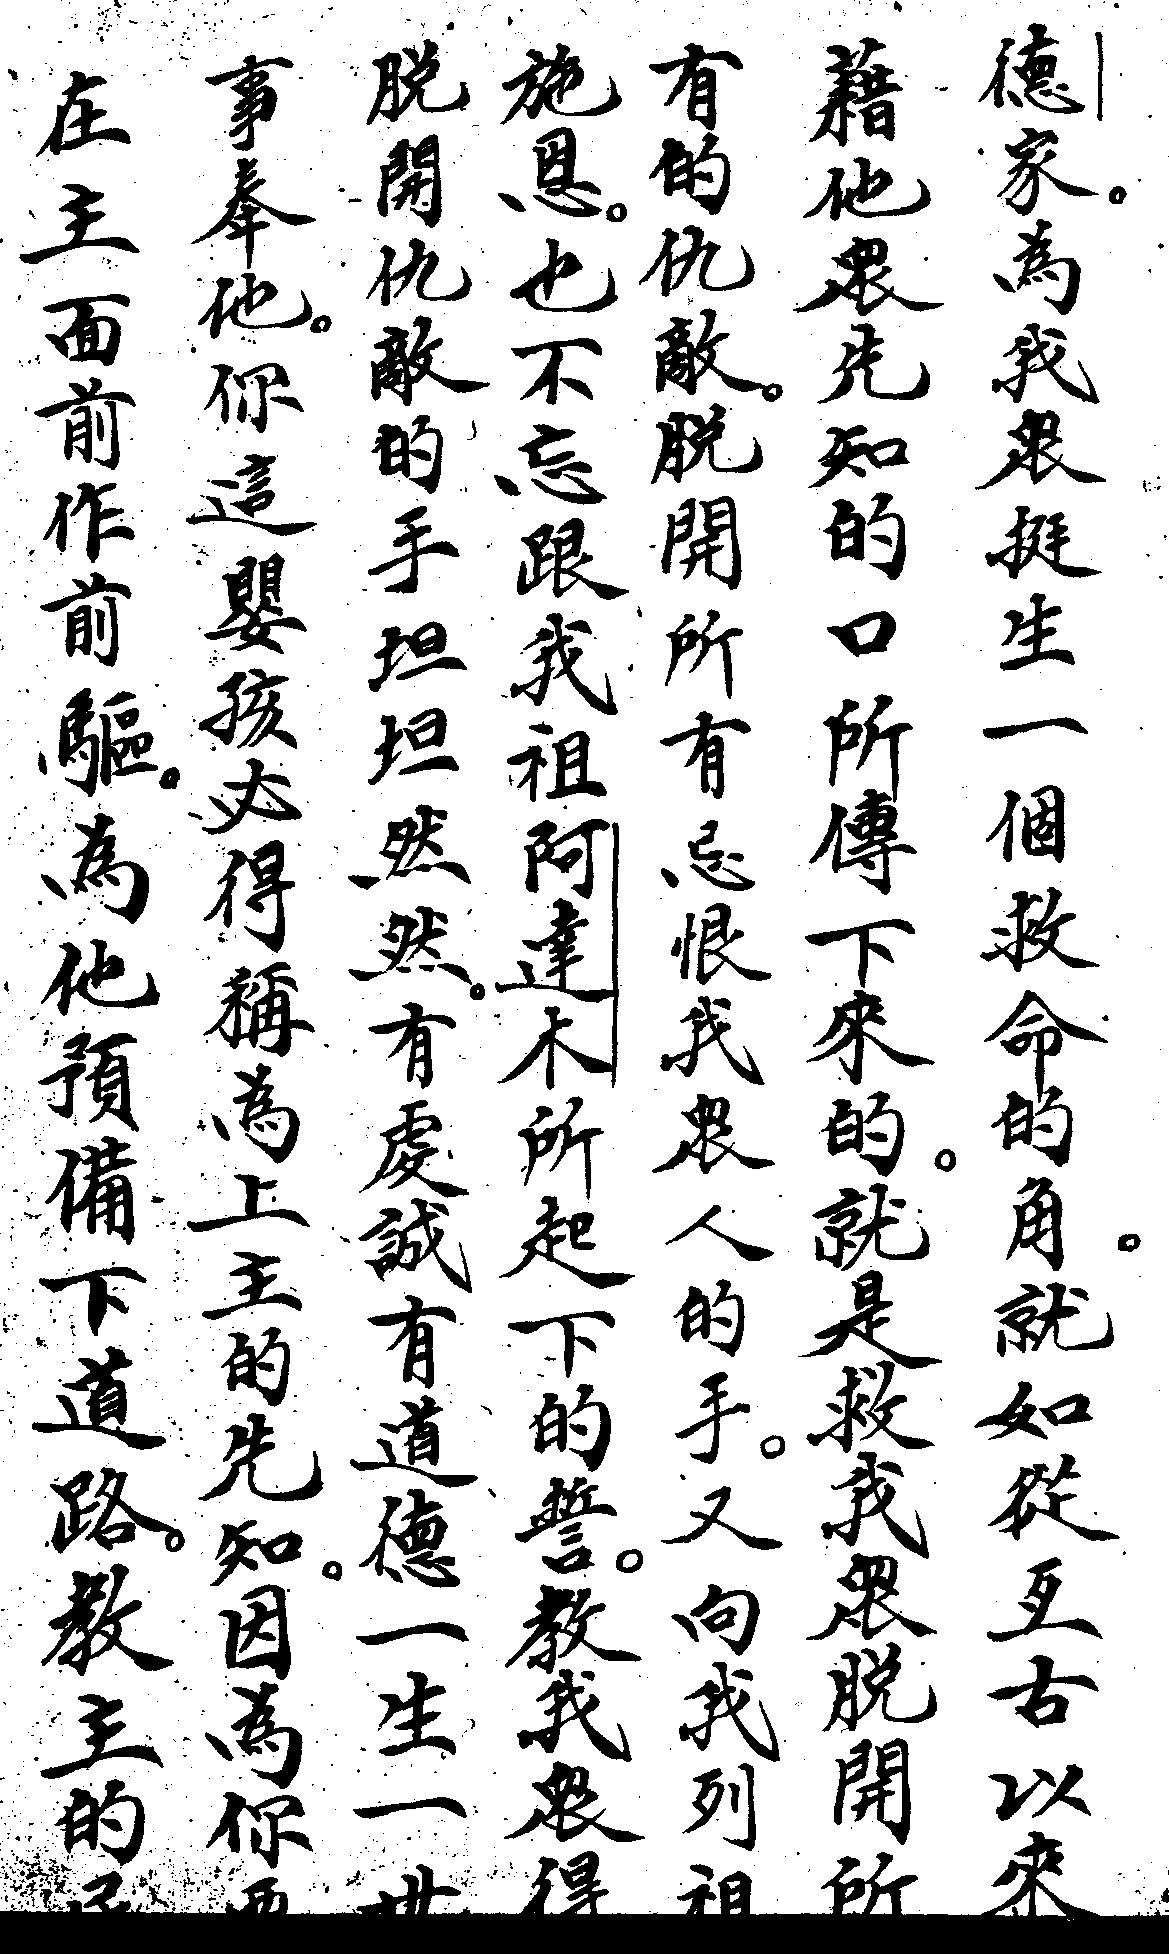 德家。為我眾挺生一個救命的角。就如從亙古以來
藉他眾先知的口所傳下來的。就是救我眾脫開所
有的仇敵。脫開所有忌恨我眾人的手。又向我列祖
施恩。也不忘跟我祖阿達木所起下的誓。教我眾得
脫開仇敵的手坦坦然然。有處誠有道德一生一世
事奉他。你這嬰孩必得稱為上主的先知。因為你要
在主面前作前驅。為他預備下道路。教主的